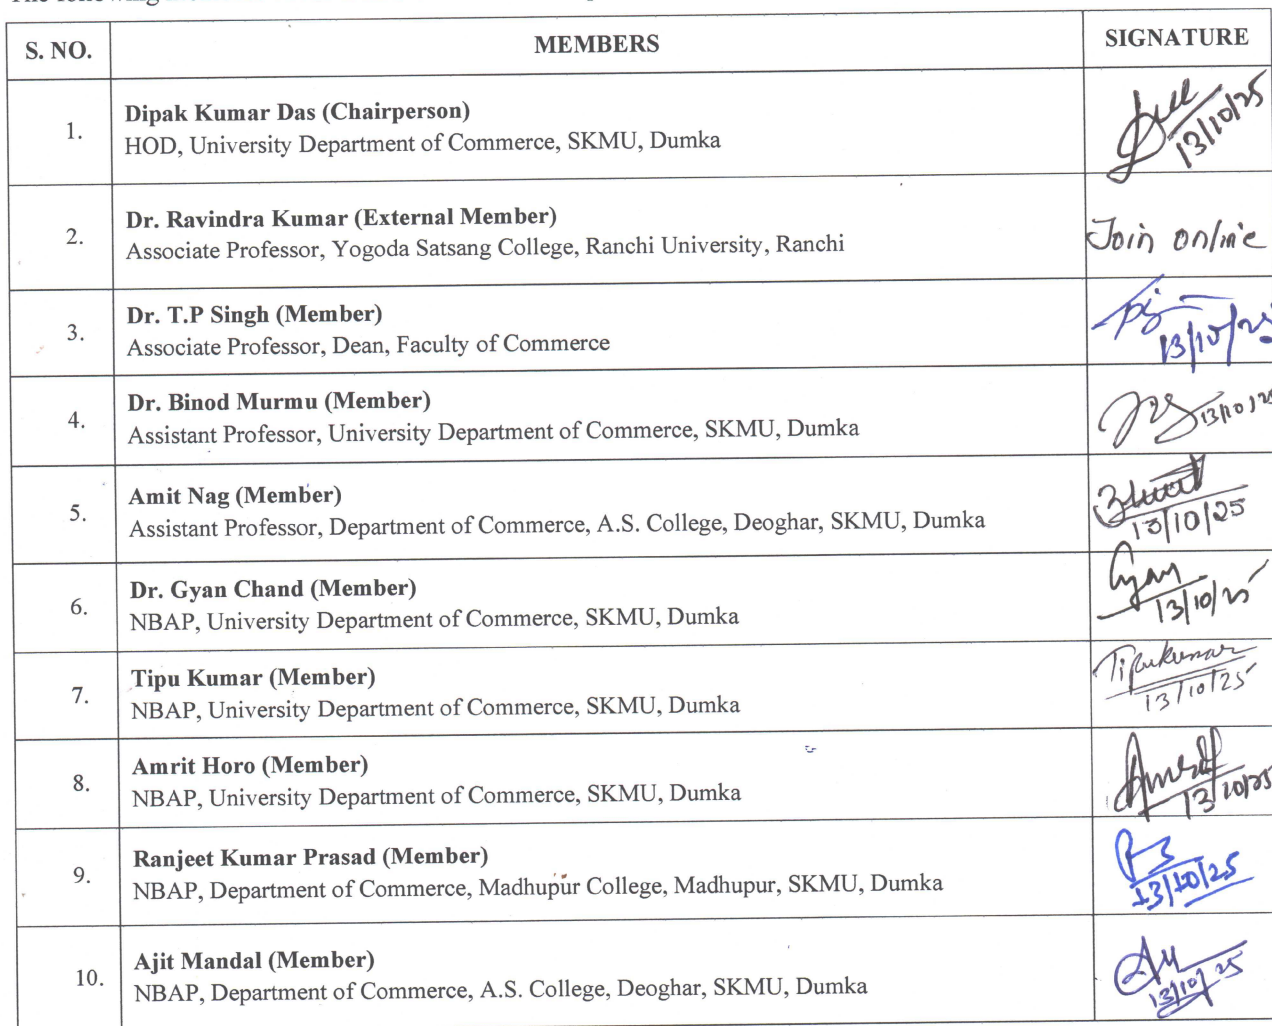 The following
S. NO. MEMBERS SIGNATURE
1. Dipak Kumar Das (Chairperson)
HOD, University Department of Commerce, SKMU, Dumka
13/10/25
2. Dr. Ravindra Kumar (External Member)
Associate Professor, Yogoda Satsang College, Ranchi University, Ranchi
Join online
3. Dr. T.P Singh (Member)
Associate Professor, Dean, Faculty of Commerce
13/10/25
4. Dr. Binod Murmu (Member)
Assistant Professor, University Department of Commerce, SKMU, Dumka
13/10/25
5. Amit Nag (Member)
Assistant Professor, Department of Commerce, A.S. College, Deoghar, SKMU, Dumka
13/10/25
6. Dr. Gyan Chand (Member)
NBAP, University Department of Commerce, SKMU, Dumka
Gyan
13/10/25
7. Tipu Kumar (Member)
NBAP, University Department of Commerce, SKMU, Dumka
Tipukumar
13/10/25
8. Amrit Horo (Member)
NBAP, University Department of Commerce, SKMU, Dumka
13/10/25
9. Ranjeet Kumar Prasad (Member)
NBAP, Department of Commerce, Madhupur College, Madhupur, SKMU, Dumka
13/10/25
10. Ajit Mandal (Member)
NBAP, Department of Commerce, A.S. College, Deoghar, SKMU, Dumka
13/10/25